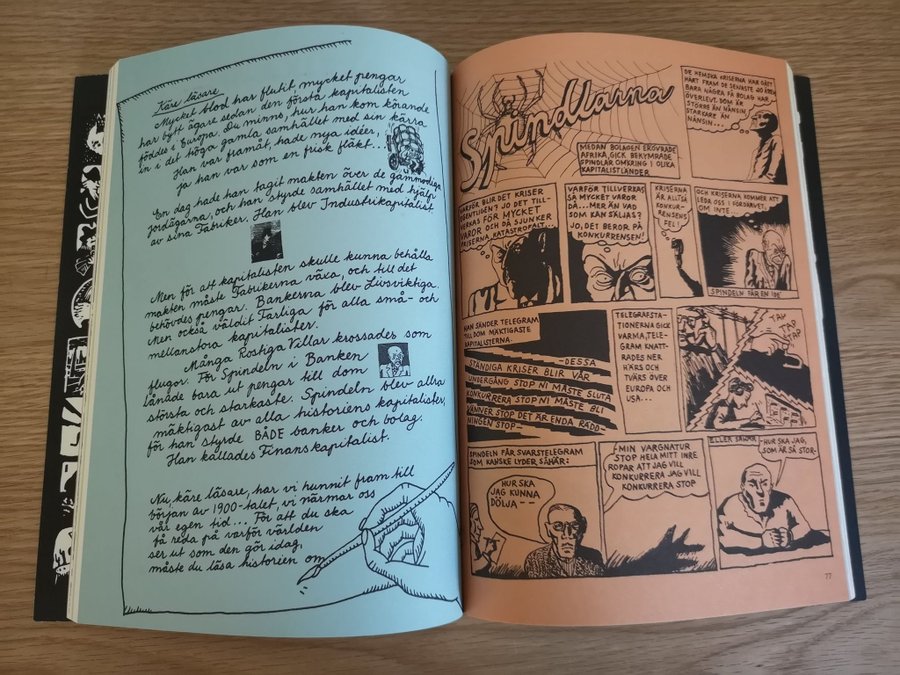 Käre läsare
Mycket blod har flutit, mycket pengar
har bytt ägare sedan den första kapitalisten
föddes i Europa. Du minns, hur han kom körande
in i det höga gamla samhället med sin kärra
Han var framåt, hade nya idéer,
ja han var som en frisk fläkt...
En dag hade han tagit makten över de gammodiga
jordägarna, och han styrde samhället med hjälp
av sina Fabriker. Han blev Industrikapitalist
Men för att kapitalisten skulle kunna behålla
makten måste Fabrikerna växa, och till det
behövdes pengar. Bankerna blev Livsviktiga.
Men också väldit Farliga för alla små- och
mellanstora kapitalister.
Många Rostiga Villar krossades som
flugor. För Spindeln i Banken
lånade bara ut pengar till dom
största och starkaste. Spindeln blev allra
mäktigast av alla historiens kapitalister,
för han styrde BÅDE banker och bolag.
Han kallades Finanskapitalist.
Nu, käre läsare, har vi hunnit fram till
början av 1900-talet, vi närmar oss
vår egen tid... För att du ska
få reda på varför världen
ser ut som den gör idag,
måste du läsa historien om
Spindlarna
MEDAN BOLAGEN ERÖVRADE
AFRIKA, GICK BEKYMRADE
SPINDLAR OMKRING I OLIKA
KAPITALISTLÄNDER
DE HEMSKA KRISERNA HAR GÅTT
HÅRT FRAM DE SENASTE 20 ÅREN
BARA NÅGRA FÅ BOLAG HAR
ÖVERLEVT. DOM ÄR
STÖRRE ÄN NÅNSIN...
STARKARE ÄN
NÅNSIN...
VARFÖR BLIR DET KRISER
EGENTLIGEN? JO DET TILL-
VERKAS FÖR MYCKET
VAROR OCH DÅ SJUNKER
PRISERNA KATASTROFALT
VARFÖR TILLVERKAS
SÅ MYCKET VAROR
DÅ... MER ÄN VAD
SOM KAN SÄLJAS?
JO, DET BEROR PÅ
KONKURRENSEN!
KRISERNA
ÄR ALLTSÅ
KONKUR-
RENSENS
FEL!
OCH KRISERNA KOMMER ATT
LEDA OSS I FÖRDÄRVET.
OM INTE
SPINDELN FÅR EN IDÉ
HAN SÄNDER TELEGRAM
TILL DOM MÄKTIGASTE
KAPITALISTERNA.
-DESSA
STÄNDIGA KRISER BLIR VÅR
UNDERGÅNG STOP NI MÅSTE SLUTA
KONKURRERA STOP NI MÅSTE BLI
VÄNNER STOP DET ÄR ENDA RÄDD-
NINGEN STOP-
TELEGRAFSTA-
TIONERNA GICK
VARMA, TELE-
GRAM KNATT-
RADES NER
HÄRS OCH
TVÄRS ÖVER
EUROPA OCH
USA...
TAP
TAP
TAP
SPINDELN FÅR SVARSTELEGRAM
SOM KANSKE LYDER SÅHÄR:
HUR SKA
JAG KUNNA
DÖLJA--
-MIN VARGNATUR
STOP HELA MITT INRE
ROPAR ATT JAG VILL
KONKURRERA JAG VILL
KONKURRERA STOP
ELLER SÅHÄR
-HUR SKA JAG,
SOM ÄR SÅ STOR-
77